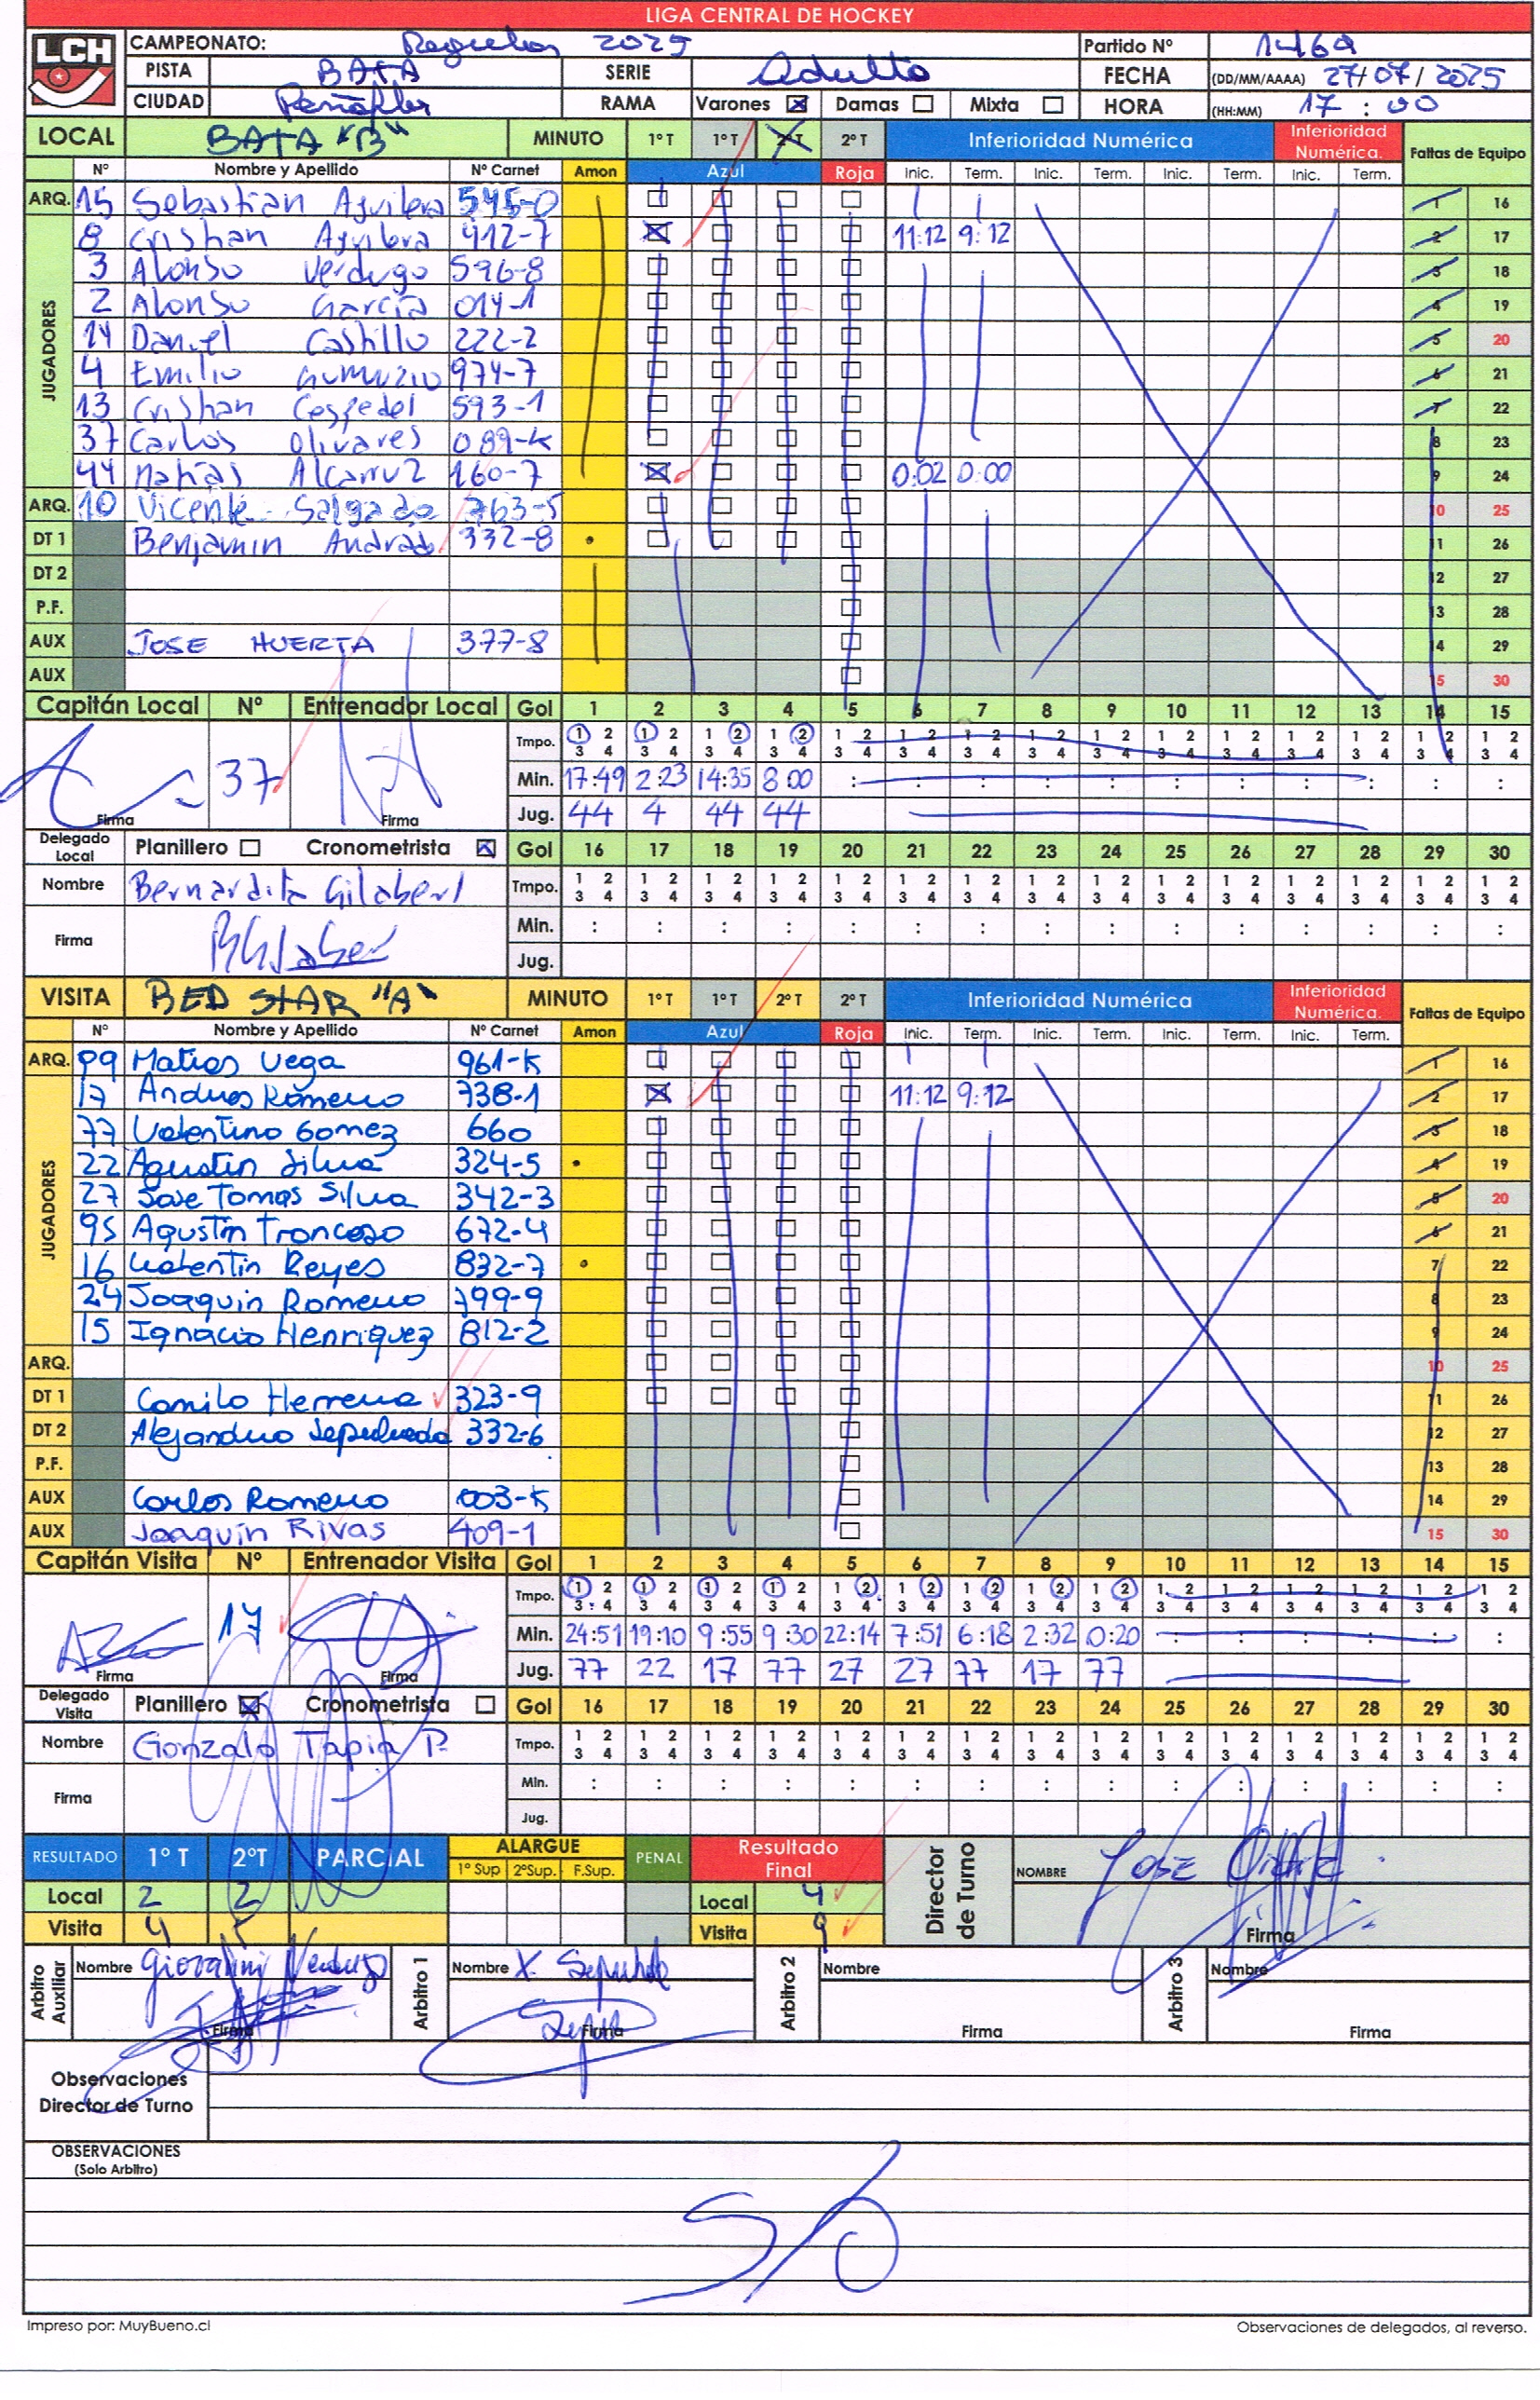 LIGA CENTRAL DE HOCKEY
LCH
CAMPEONATO: Regular 2025 Partido Nº 146a
PISTA BATA SERIE Adulto FECHA (DD/MM/AAAA) 27/07/2025
CIUDAD Peñaflor RAMA Varones Damas Mixta HORA (HH:MM) 17:00
LOCAL BATA "B" MINUTO 1º T 1º T 2º T 2º T Inferioridad Numérica Inferioridad Numérica. Faltas de Equipo
Nº Nombre y Apellido Nº Carnet Amon Azul Roja Inic. Term. Inic. Term. Inic. Term. Inic. Term.
ARQ. 15 Sebastian Aguilera 545-0 1 16
JUGADORES
8 Cristian Aguilera 412-7 11:12 9:12 2 17
3 Alonso Verdugo 596-8 3 18
2 Alonso García 014-1 4 19
14 Daniel Castillo 222-2 5 20
4 Emilio 974-7 6 21
13 Cristian Cespedel 593-1 7 22
37 Carlos Olivares 089-K 8 23
44 Matías Alcarruz 160-7 0:02 0:00 9 24
ARQ. 10 Vicente Salgado 763-5 10 25
DT 1 Benjamin Andrad 332-8 11 26
DT 2 12 27
P.F. 13 28
AUX JOSE HUERTA 377-8 14 29
AUX 15 30
Capitán Local Nº Entrenador Local Gol 1 2 3 4 5 6 7 8 9 10 11 12 13 14 15
Tmpo. 1 2 1 2 1 2 1 2 1 2 1 2 1 2 1 2 1 2 1 2 1 2 1 2 1 2 1 2 1 2
3 4 3 4 3 4 3 4 3 4 3 4 3 4 3 4 3 4 3 4 3 4 3 4 3 4 3 4 3 4
37 Min. 17:49 2:23 14:35 8:00 : : : : : : : : : : :
Firma Firma Jug. 44 4 44 44
Delegado Local Planillero Cronometrista Gol 16 17 18 19 20 21 22 23 24 25 26 27 28 29 30
Nombre Bernardita Gilabert Tmpo. 1 2 1 2 1 2 1 2 1 2 1 2 1 2 1 2 1 2 1 2 1 2 1 2 1 2 1 2 1 2
3 4 3 4 3 4 3 4 3 4 3 4 3 4 3 4 3 4 3 4 3 4 3 4 3 4 3 4 3 4
Firma Min. : : : : : : : : : : : : : : :
Jug.
VISITA RED STAR "A" MINUTO 1º T 1º T 2º T 2º T Inferioridad Numérica Inferioridad Numérica. Faltas de Equipo
Nº Nombre y Apellido Nº Carnet Amon Azul Roja Inic. Term. Inic. Term. Inic. Term. Inic. Term.
ARQ. 99 Matias Vega 961-K 1 16
JUGADORES
17 Andres Romero 738-1 11:12 9:12 2 17
77 Valentino Gomez 660 3 18
22 Agustin Silva 324-5 4 19
27 Jose Tomas Silva 342-3 5 20
95 Agustin Troncoso 672-4 6 21
16 Valentin Reyes 832-7 7 22
24 Joaquin Romero 799-9 8 23
15 Ignacio Henriquez 812-2 9 24
ARQ. 10 25
DT 1 Camilo Herrera 323-9 11 26
DT 2 Alejandro Sepulveda 332-6 12 27
P.F. 13 28
AUX Carlos Romero 003-K 14 29
AUX Joaquín Rivas 409-1 15 30
Capitán Visita Nº Entrenador Visita Gol 1 2 3 4 5 6 7 8 9 10 11 12 13 14 15
Tmpo. 1 2 1 2 1 2 1 2 1 2 1 2 1 2 1 2 1 2 1 2 1 2 1 2 1 2 1 2 1 2
3 4 3 4 3 4 3 4 3 4 3 4 3 4 3 4 3 4 3 4 3 4 3 4 3 4 3 4 3 4
17 Min. 24:51 19:10 9:55 9:30 22:14 7:51 6:18 2:32 0:20 : : : : : :
Firma Firma Jug. 77 22 17 77 27 27 77 17 77
Delegado Visita Planillero Cronometrista Gol 16 17 18 19 20 21 22 23 24 25 26 27 28 29 30
Nombre Gonzalo Tapia P. Tmpo. 1 2 1 2 1 2 1 2 1 2 1 2 1 2 1 2 1 2 1 2 1 2 1 2 1 2 1 2 1 2
3 4 3 4 3 4 3 4 3 4 3 4 3 4 3 4 3 4 3 4 3 4 3 4 3 4 3 4 3 4
Firma Min. : : : : : : : : : : : : : : :
Jug.
RESULTADO 1º T 2ºT PARCIAL ALARGUE 1º Sup 2ºSup. F.Sup. PENAL Resultado Final Director de Turno NOMBRE JOSE
Local 2 2 Local 4
Visita 4 5 Visita 9 Firma
Arbitro Auxiliar Nombre Giovanni Verdugo Arbitro 1 Nombre X. Sepulveda Arbitro 2 Nombre Arbitro 3 Nombre
Firma Firma Firma Firma
Observaciones Director de Turno
OBSERVACIONES
(Solo Arbitro)
S/O
Impreso por: MuyBueno.cl Observaciones de delegados, al reverso.